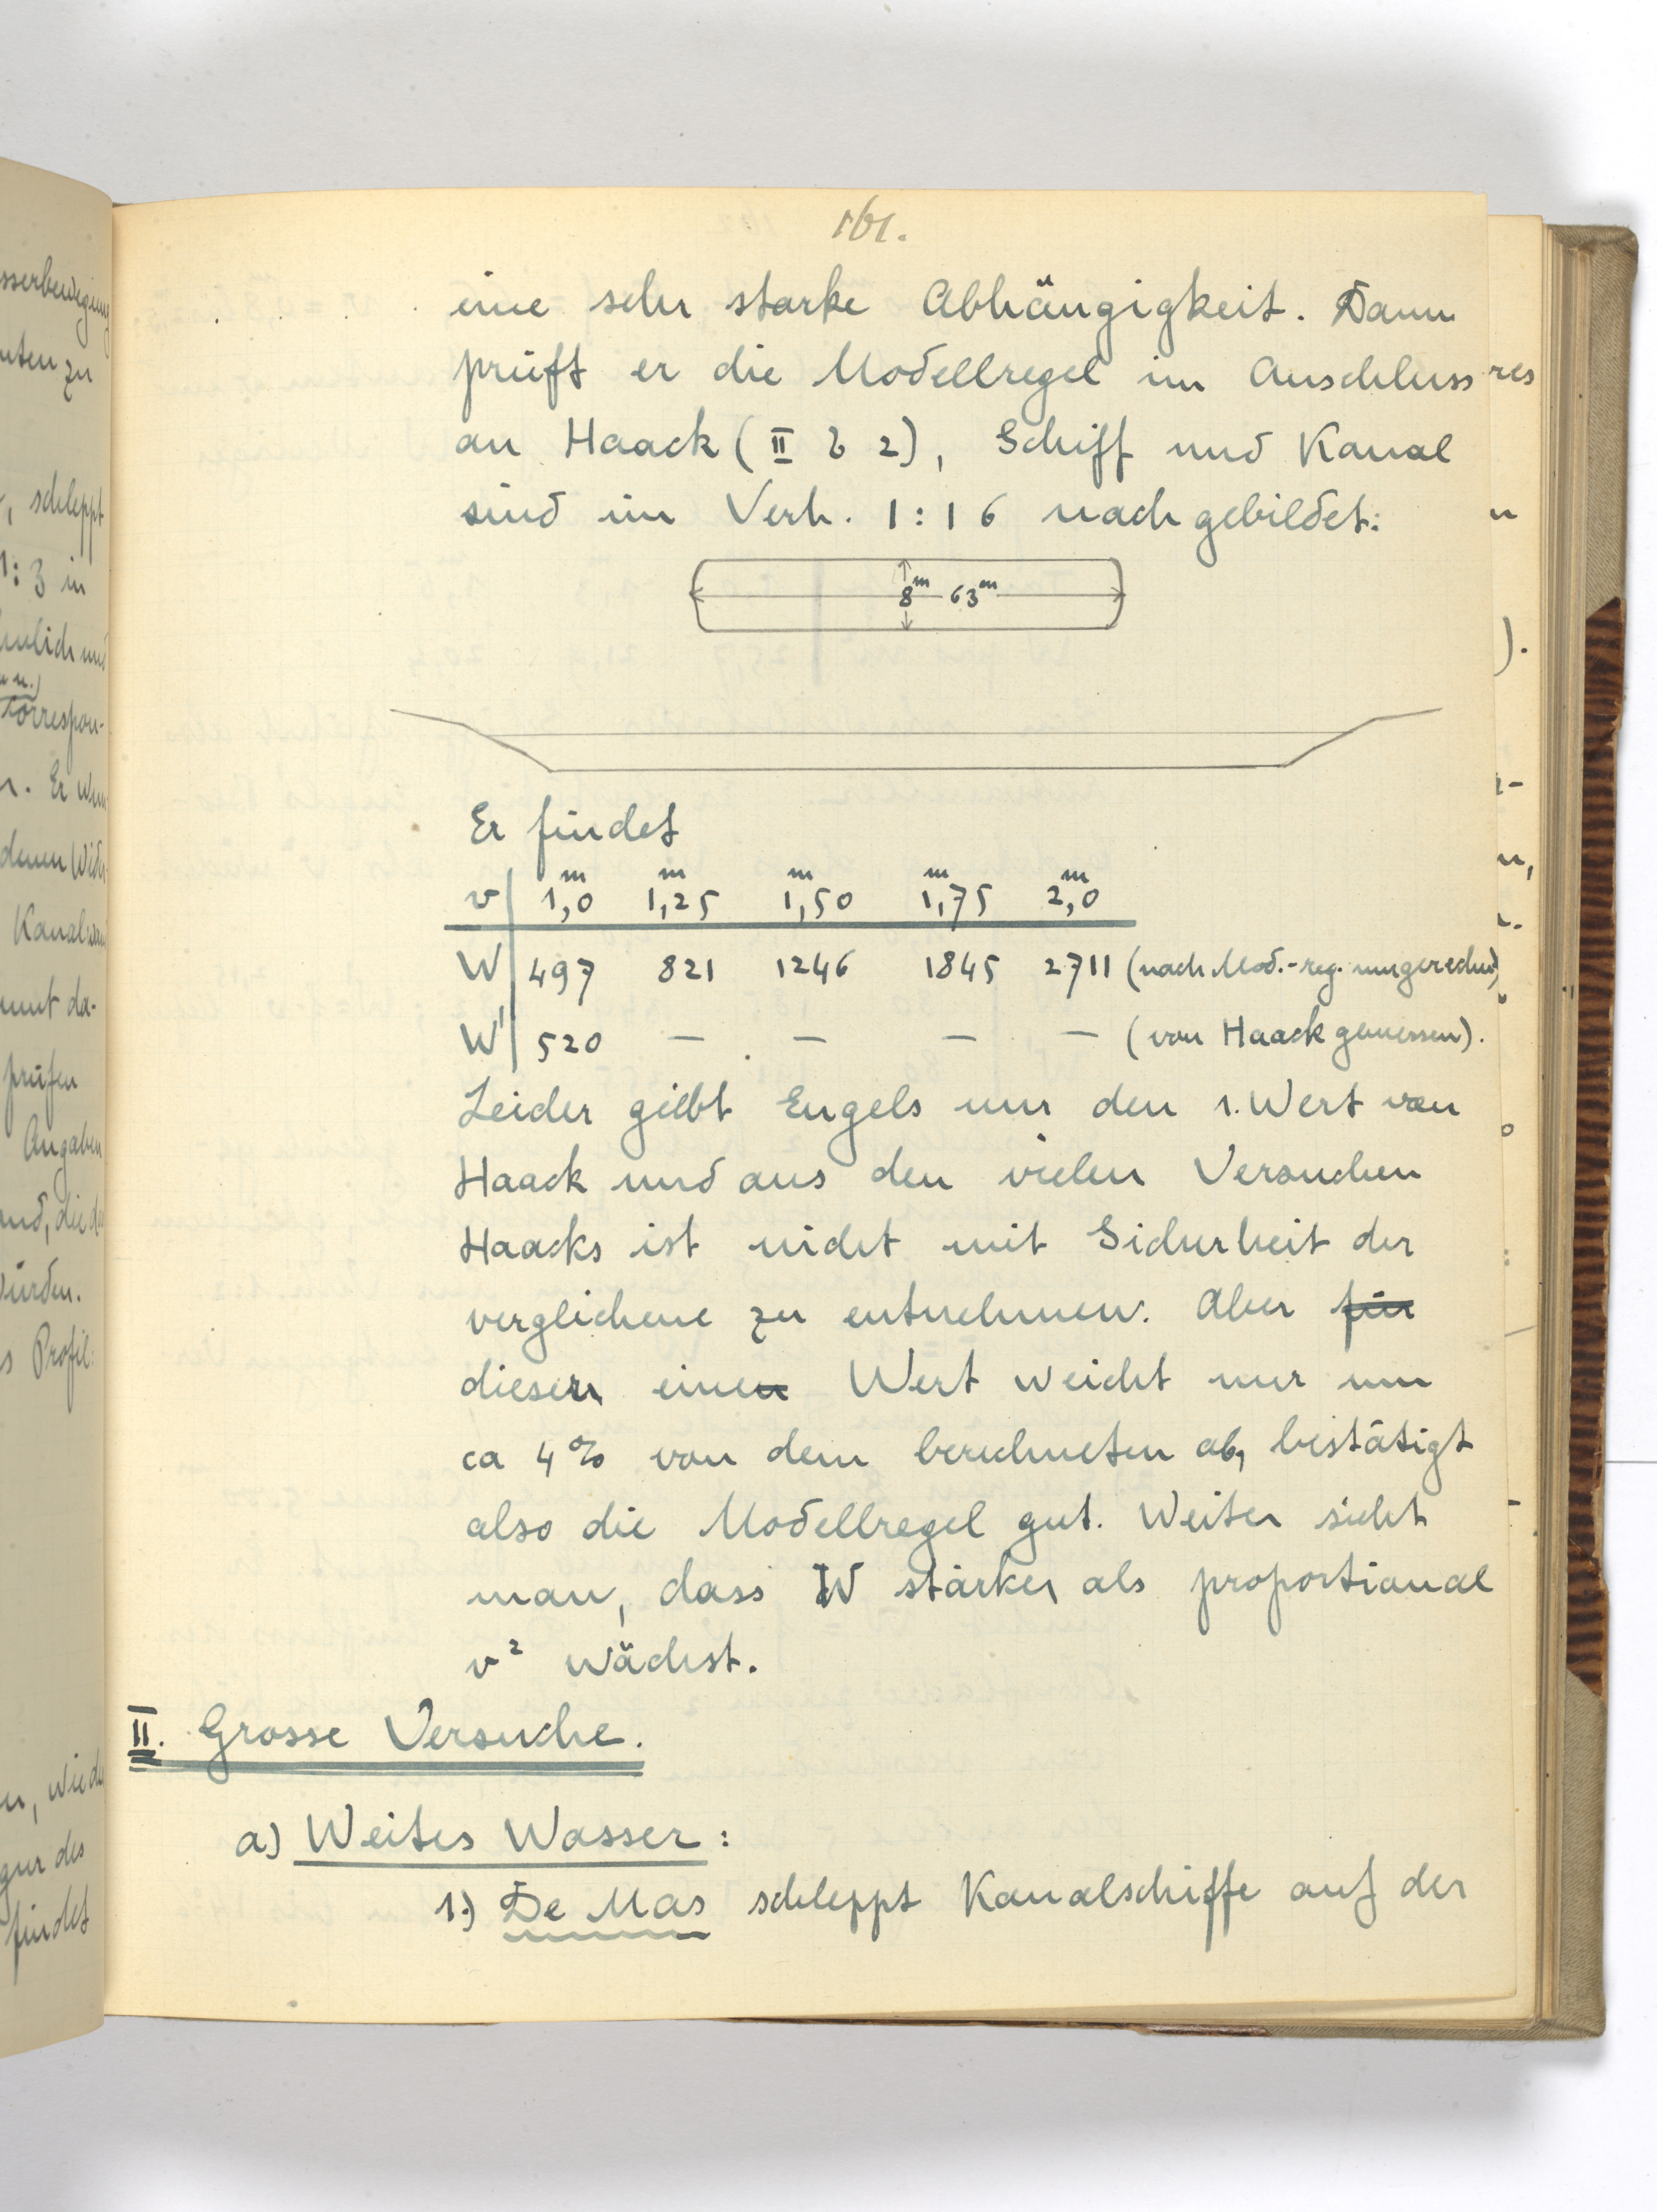 161.
eine sehr starke Abhängigkeit. Dann
prüft er die Modellregel im Anschluss
an Haack (II b 2), Schiff und Kanal
sind im Verh. 1:16 nachgebildet:
8m 63m
Er findet
v 1,0m 1,25m 1,50m 1,75m 2,0m
W 497 821 1246 1845 2711 (nach Mod.-reg. umgerechn.)
W' 520 — — — — (von Haack gemessen).
Leider giebt Engels nur den 1. Wert von
Haack und aus den vielen Versuchen
Haacks ist nicht mit Sicherheit der
verglichene zu entnehmen. Aber für
dieser eine Wert weicht nur um
ca 4% von dem berechneten ab, bestätigt
also die Modellregel gut. Weiter sieht
man, dass W stärker als proportional
v² wächst.
II. Grosse Versuche.
a) Weites Wasser:
1.) De Mas schleppt Kanalschiffe auf der
sserbewegung
uten zu
, schleppt
1:3 in
hnlich und
correspon-
r. Er
Kanal
prüfen
Angaben
würden.
s Profil:
gur des
findet
res